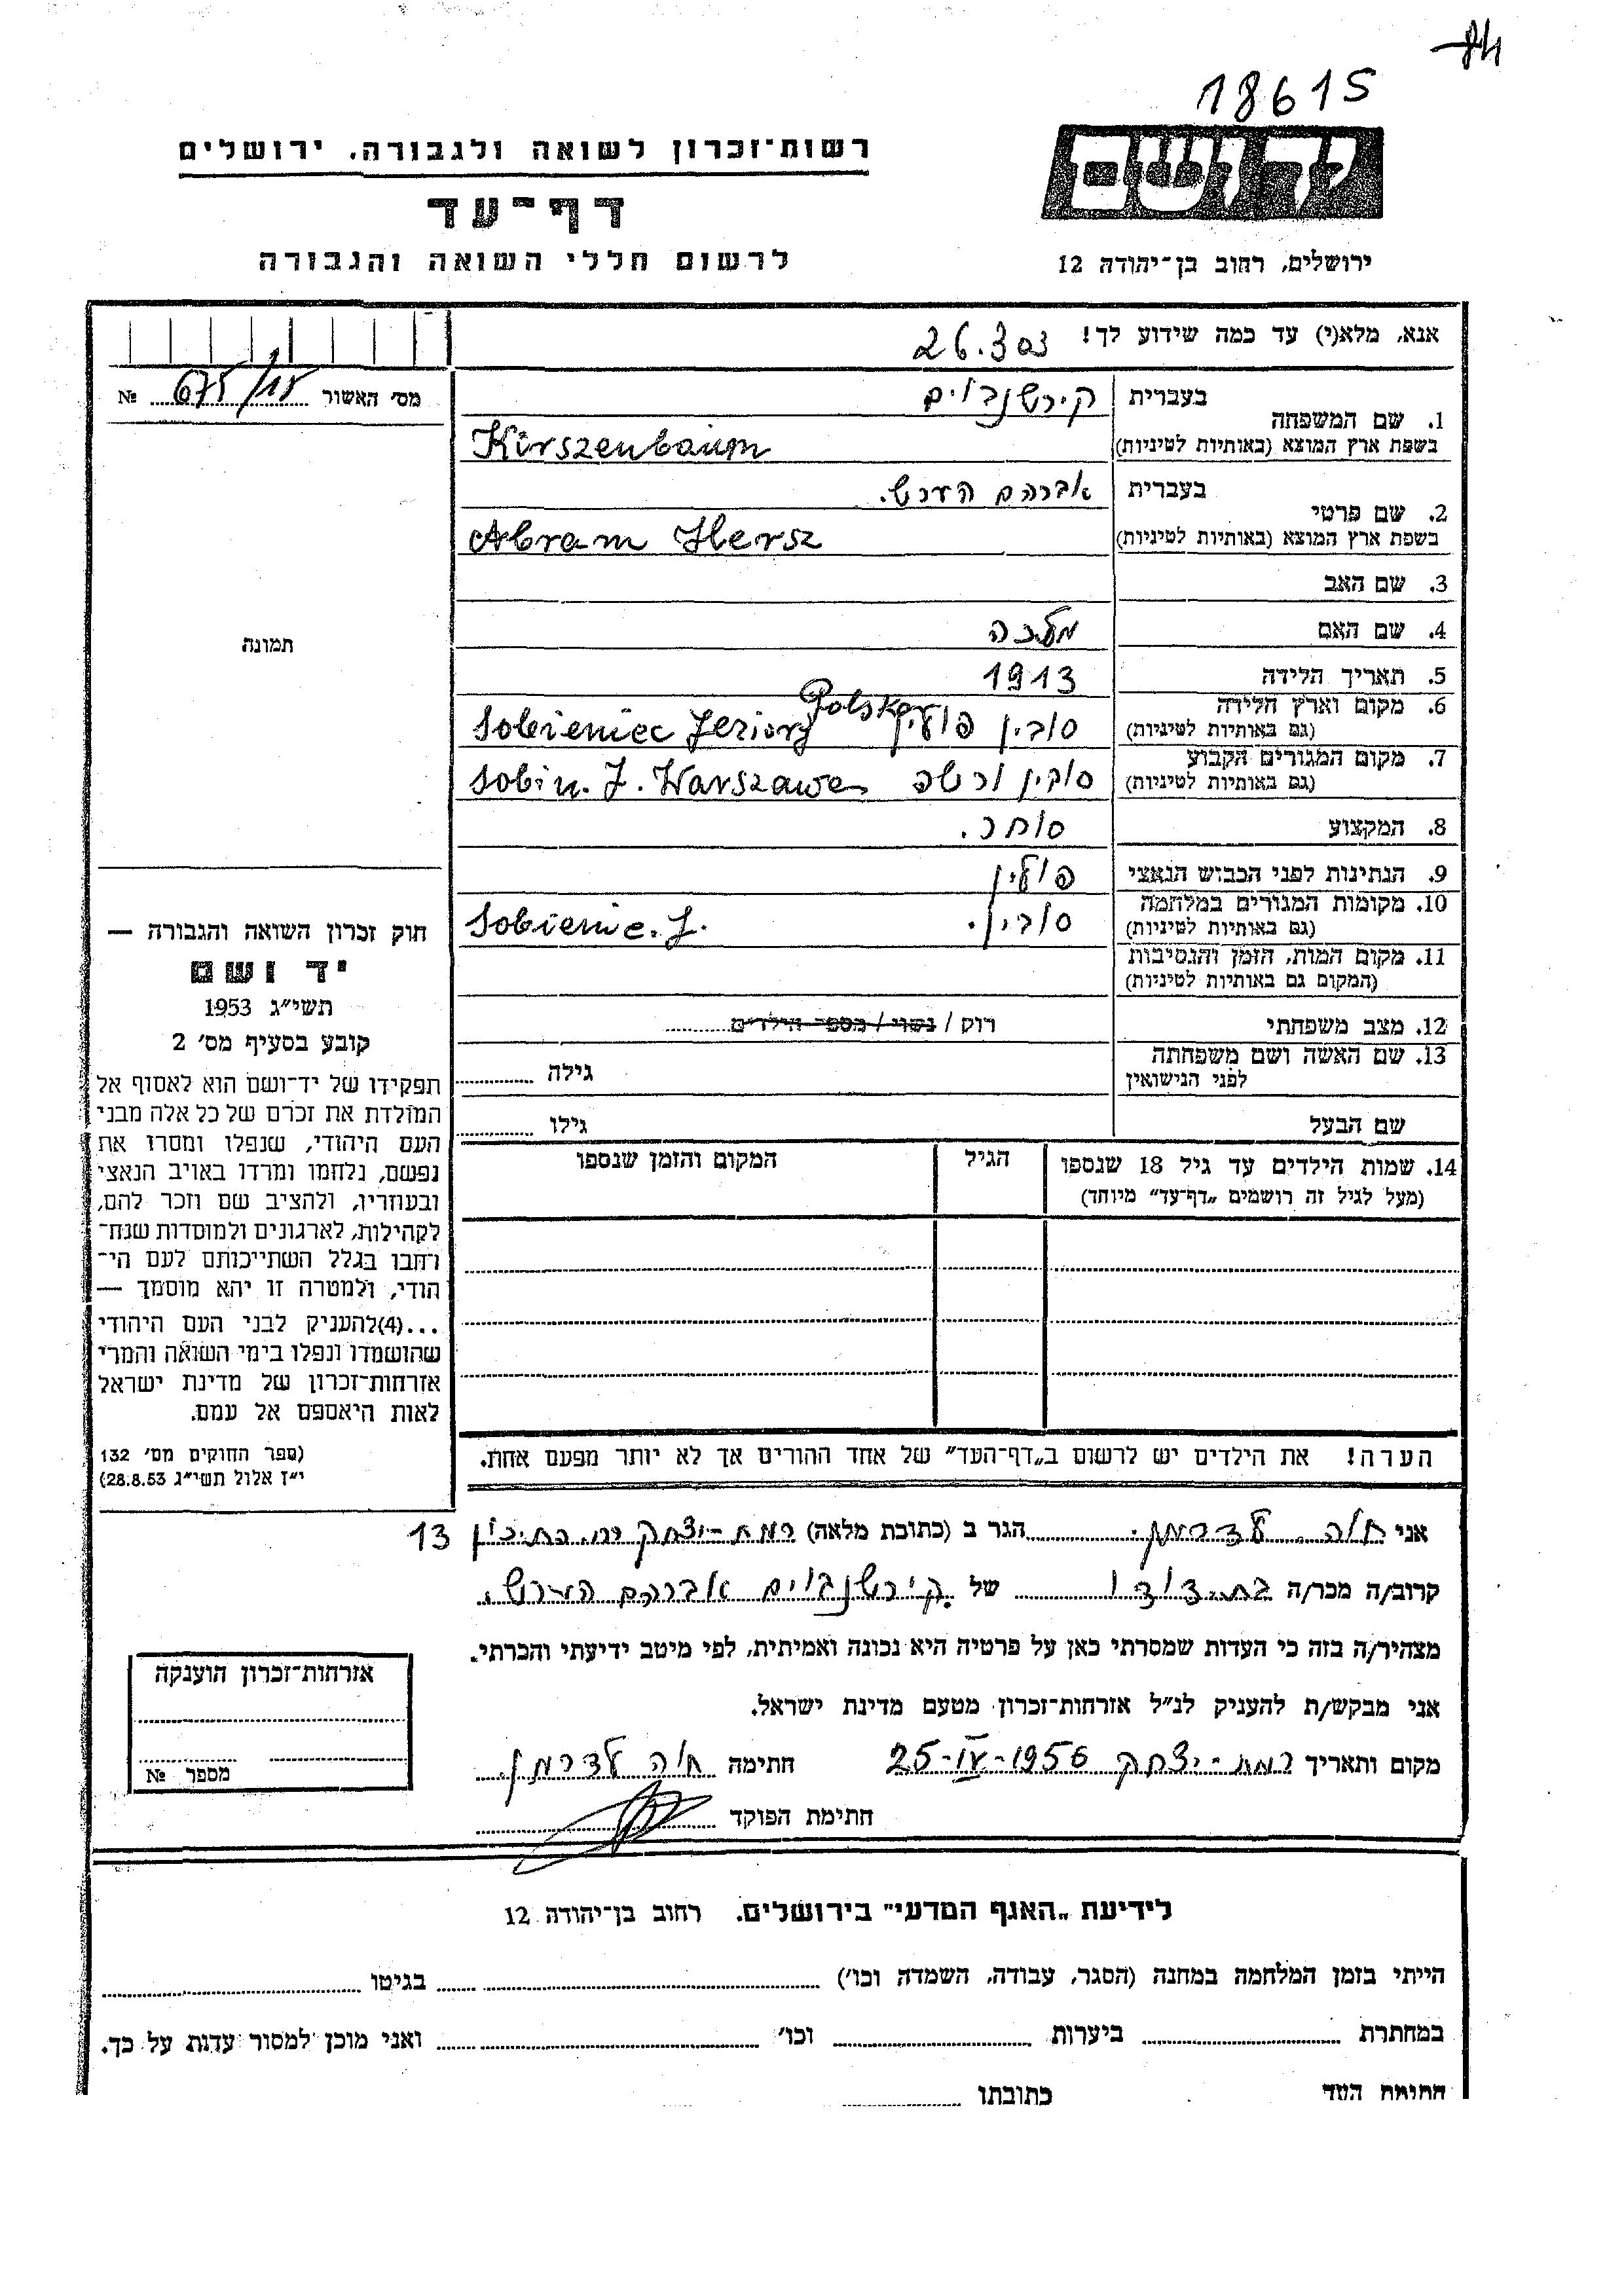 18615
רשות־זכרון לשואה ולגבורה, ירושלים
דף־עד
לרשום חללי השואה והגבורה
ירושלים, רחוב בן־יהודה 12
אנא, מלא(י) עד כמה שידוע לך!
מס׳ האשור № 675/18
1. שם המשפחה
בעברית קירשנבוים
בשפת ארץ המוצא (באותיות לטיניות) Kirszenbaum
2. שם פרטי
בעברית אברהם הערש.
בשפת ארץ המוצא (באותיות לטיניות) Abram Hersz
3. שם האב
4. שם האם מלכה
5. תאריך הלידה 1913
6. מקום וארץ הלידה (גם באותיות לטיניות) סובין פולין Sobieniec Jeziory Polska
7. מקום המגורים הקבוע (גם באותיות לטיניות) סובין ורשה Sobin. J. Warszawa
8. המקצוע סוחר.
9. הנתינות לפני הכבוש הנאצי פולין
10. מקומות המגורים במלחמה (גם באותיות לטיניות) סובין. Sobienie. J.
11. מקום המות, הזמן והנסיבות (המקום גם באותיות לטיניות)
12. מצב משפחתי רוק / נשוי / מספר הילדים
13. שם האשה ושם משפחתה לפני הנישואין גילה
שם הבעל גילו
14. שמות הילדים עד גיל 18 שנספו (מעל לגיל זה רושמים „דף־עד״ מיוחד)
הגיל
המקום והזמן שנספו
הערה! את הילדים יש לרשום ב„דף־העד״ של אחד ההורים אך לא יותר מפעם אחת.
תמונה
חוק זכרון השואה והגבורה —
יד ושם
תשי״ג 1953
קובע בסעיף מס׳ 2
תפקידו של יד־ושם הוא לאסוף אל
המולדת את זכרם של כל אלה מבני
העם היהודי, שנפלו ומסרו את
נפשם, נלחמו ומרדו באויב הנאצי
ובעוזריו, ולהציב שם וזכר להם,
לקהילות, לארגונים ולמוסדות שנח־
רחבו בגלל השתייכותם לעם הי־
הודי, ולמטרה זו יהא מוסמך —
...(4)להעניק לבני העם היהודי
שהושמדו ונפלו בימי השואה והמרי
אזרחות־זכרון של מדינת ישראל
לאות היאספם אל עמם.
(ספר החוקים מס׳ 132
י״ז אלול תשי״ג 28.8.53)
אני חוה לדרמן. הגר ב (כתובת מלאה) רמת-יצחק 13
קרוב/ה מכר/ה בת דודו של קירשנבוים אברהם הערש.
מצהיר/ה בזה כי העדות שמסרתי כאן על פרטיה היא נכונה ואמיתית, לפי מיטב ידיעתי והכרתי.
אני מבקש/ת להעניק לנ״ל אזרחות־זכרון מטעם מדינת ישראל.
מקום ותאריך רמת-יצחק 25-IV-1956 חתימה חוה לדרמן.
חתימת הפוקד
אזרחות־זכרון הוענקה
מספר №
לידיעת „האגף המדעי״ בירושלים. רחוב בן־יהודה 12
הייתי בזמן המלחמה במחנה (הסגר, עבודה, השמדה וכו׳) בגיטו
במחתרת ביערות וכו׳ ואני מוכן למסור עדות על כך.
חתימת העד כתובתו